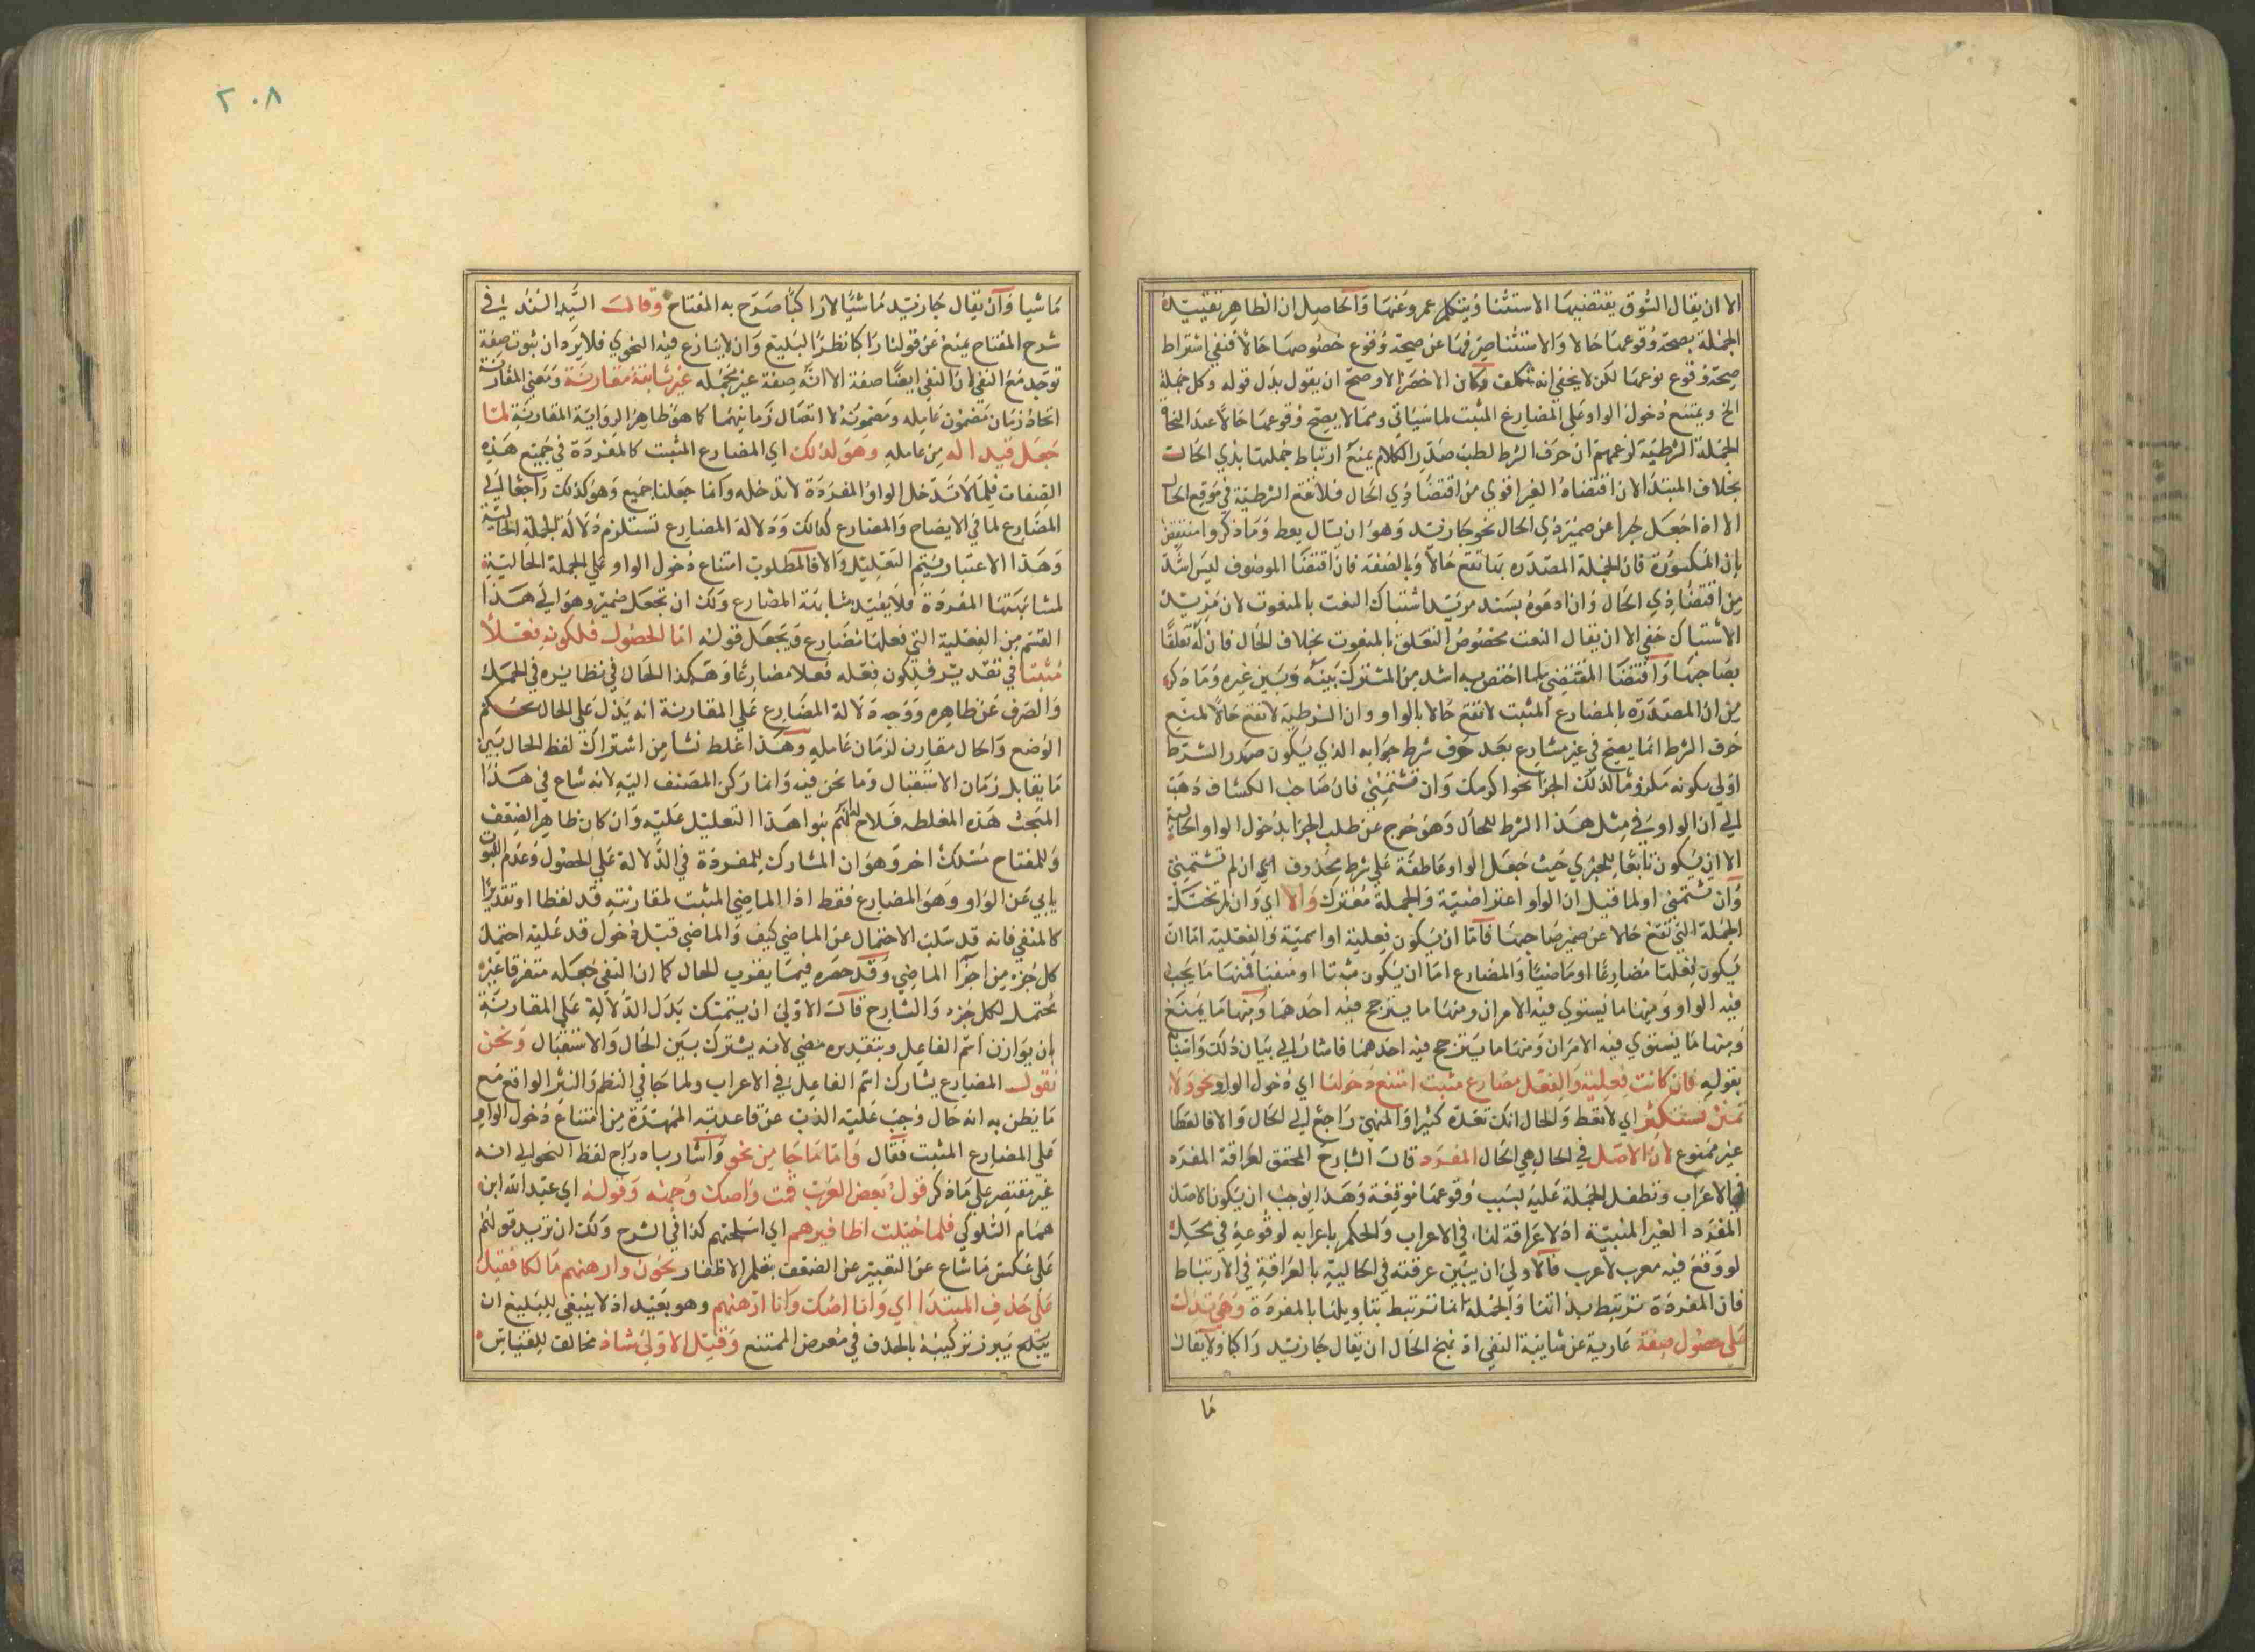 الا ان يقال السوق يقتضيها الاستثنا ويتكلم عمرو عنها والحاصل ان الظاهر تقييده
الجملة بصحة وقوعها حالا والاستثنا صرفها عن صحة وقوع خصوصها حالا فنفي اشتراط
صحة وقوع نوعها لكن لا يخفى انه تكلف وكان الاخصر الاوضح ان يقول بدل قوله وكل جملة
الخ ويمتنع دخول الواو على المضارع المثبت لما سياتي ومما لا يصح وقوعها حالا عند النحاة
الجملة الشرطية لزعمهم ان حرف الشرط لطلب صدر الكلام يمنع ارتباط جملتها بذي الحال
بخلاف المبتدا لان اقتضاه الخبر اقوى من اقتضا ذي الحال فلا تقع الشرطية في موقع الحال
الا اذا جعل خبرا عن ضمير ذي الحال نحو جا زيد وهو ان يسال يعط وما ذكروا منتقض
بان المكسورة فان الجملة المصدرة بها تقع حالا وبالصفة فان اقتضا الموصوف ليس اشد
من اقتضا ذي الحال وان ادعوه بسند مزيد اشتباك النعت بالمنعوت لان مزيد
الاشتباك خفي الا ان يقال النعت مخصوص التعلق بالمنعوت بخلاف الحال فان له تعلقا
بصاحبها واقتضا المقتضي لما اختص به اشد من المشترك بينه وبين غيره وما ذكر
من ان المصدرة بالمضارع المثبت لا تقع حالا بالواو وان الشرطية لا تقع حالا لمنع
حرف الشرط انما يصح في غير مضارع بعد حرف شرط جوابه الذي يكون صدر الشرط
اولى بكونه ملزوما لذلك الجزا نحو اكرمك وان تشتمني فان صاحب الكشاف ذهب
الى ان الواو في مثل هذا الشرط للحال وهو خرج عن طلب الجزا بدخول الواو الحالية
الا ان يكون تابعا للجنزي حيث جعل الواو عاطفة على شرط محذوف اي ان لم تشتمني
وان تشتمني او لما قيل ان الواو اعتراضية والجملة معترك والا اي وان لم تخل
الجملة التي تقع حالا عن ضمير صاحبها فاما ان يكون فعلية او اسمية والفعلية اما ان
يكون فعلها مضارعا او ماضيا والمضارع اما ان يكون مثبتا او منفيا فمنها ما يجب
فيه الواو ومنها ما يستوي فيه الامران ومنها ما يترجح فيه احدهما ومنها ما يمتنع
ومنها ما يستوي فيه الامران ومنها ما يترجح فيه احدهما فاشار الى بيان ذلك واسبابه
بقوله فان كانت فعلية والفعل مضارع مثبت امتنع دخولها اي دخول الواو نحو ولا
تمنن تستكثر اي لا تعط والحال انك تعده كثيرا والمنهي راجع الى الحال والا فالعطا
غير ممنوع لان الاصل في الحال هي الحال المفرد قال الشارح المحقق لعراقة المفرد
في الاعراب وتطفل الجملة عليه لسبب وقوعها موقعه وهذا يوجب ان يكون الاصل
المفرد الغير المنبية اذ لا عراقة لها في الاعراب والحكم باعرابه لوقوعه في محل
لو وقع فيه معرب لاعرب فالاولى ان يبين عرقته في الحالية بالعراقة في الارتباط
فان المفردة ترتبط بذاتها والجملة انما ترتبط بتاويلها بالمفردة وهي تدل
على حصول صفة عارية عن شايبة النفي اذ نهج الحال ان يقال جا زيد راكبا ولا يقال
ما
٢٠٨
ماشيا وان يقال جا زيد ماشيا لا راكبا صرح به المفتاح وقال السيد السند في
شرح المفتاح يمنع عن قولنا راكبا نظر البليغ وان لا ينازع فيه النحوي فلا يرد ان ثبوت صفة
توجد مع النفي لان النفي ايضا صفة الا انه صفة غير مجملة غير ثابتة مقارنة ومعنى المقارنة
اتحاد زمان مضمون عامله ومضمونه لا اتصال زمانيهما كما هو ظاهر الرواية المقارنة لما
جعل قيدا له من عامله وهو لذلك اي المضارع المثبت كالمفردة في جميع هذه
الصفات فلما لا تدخل الواو المفردة لا تدخله وانما جعلنا جميع وهو كذلك راجعا الى
المضارع لما في الايضاح والمضارع كذلك ودلالة المضارع تستلزم دلالة الجملة الحالية
وهذا الاعتبار يتم التعليل والا فالمطلوب امتناع دخول الواو على الجملة الحالية
لمشابهتها المفردة فلا يفيد مشابهة المضارع ولك ان تجعل ضمير وهو الى هذا
القسم من الفعلية التي فعلها مضارع ويجعل قوله اما الحصول فلكونه فعلا
مثبتا في تقدير فلكون فعله فعلا مضارعا وهكذا الحال في نظايره في الحمل
والصرف عن ظاهره ووجه دلالة المضارع على المقارنة انه يدل على الحال بحكم
الوضع والحال مقارن لزمان عامله وهذا غلط نشا من اشتراك لفظ الحال بين
ما يقابل زمان الاستقبال وما نحن فيه وانما ركن المصنف اليه لانه شاع في هذا
المبحث هذه المغلطة فلاح انهم بنوا هذا التعليل عليه وان كان ظاهر الضعف
وللمفتاح مسلك اخر وهو ان المشارك للمفردة في الدلالة على الحصول وعدم الثبوت
يابى عن الواو وهو المضارع فقط اذا الماضي المثبت لمقارنته قد لفظا او تقديرا
كالمنفي فانه قد سلب الاحتمال عن الماضي كيف والماضي قبل دخول قد عليه احتمل
كل جزء من اجزا الماضي وقد حصره فيما يقرب للحال كما ان النفي جعله متفرقا غير
محتمل لكل جزء والشارح قال الاولى ان يتمسك بدل الدلالة على المقارنة
بان يوازن اسم الفاعل وبتقديره مضي لانه يشترك بين الحال والاستقبال ونحن
نقول المضارع يشارك اسم الفاعل في الاعراب ولما جا في النظم والنثر الواقع مع
ما يظن به انه حال وجب عليه الذب عن قاعدته الممهدة من امتناع دخول الواو
على المضارع المثبت فقال واما ما جا من نحو واشار باه راج لفظ النحو الى انه
غير مقتصر على ما ذكر قول بعض العرب قمت واصك وجهه وقوله اي عبد الله ابن
همام السلولي فلما خشيت اظافيرهم اي اسلحتهم كذا في الشرح ولك ان تريد قولهم
على عكس ما شاع عن التعبير عن الضعف بقلم الاظفار نجوت وارهنهم مالكا فقيل
على حذف المبتدا اي وانا اصك وانا ارهنهم وهو بعيد اذ لا ينبغي للبليغ ان
يبرز تركيبه بالحذف في معرض الممتنع وقيل الاولى شاذ مخالف للقياس